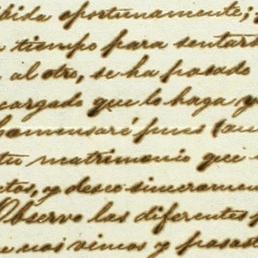 bida oportunamente;
tiempo para sentar
al otro, se ha pasado
cargado que lo haga y
comensaré pues
tu matrimonio que
tos, y deseo sinceramen
Observo las diferentes
nos vimos y pasast